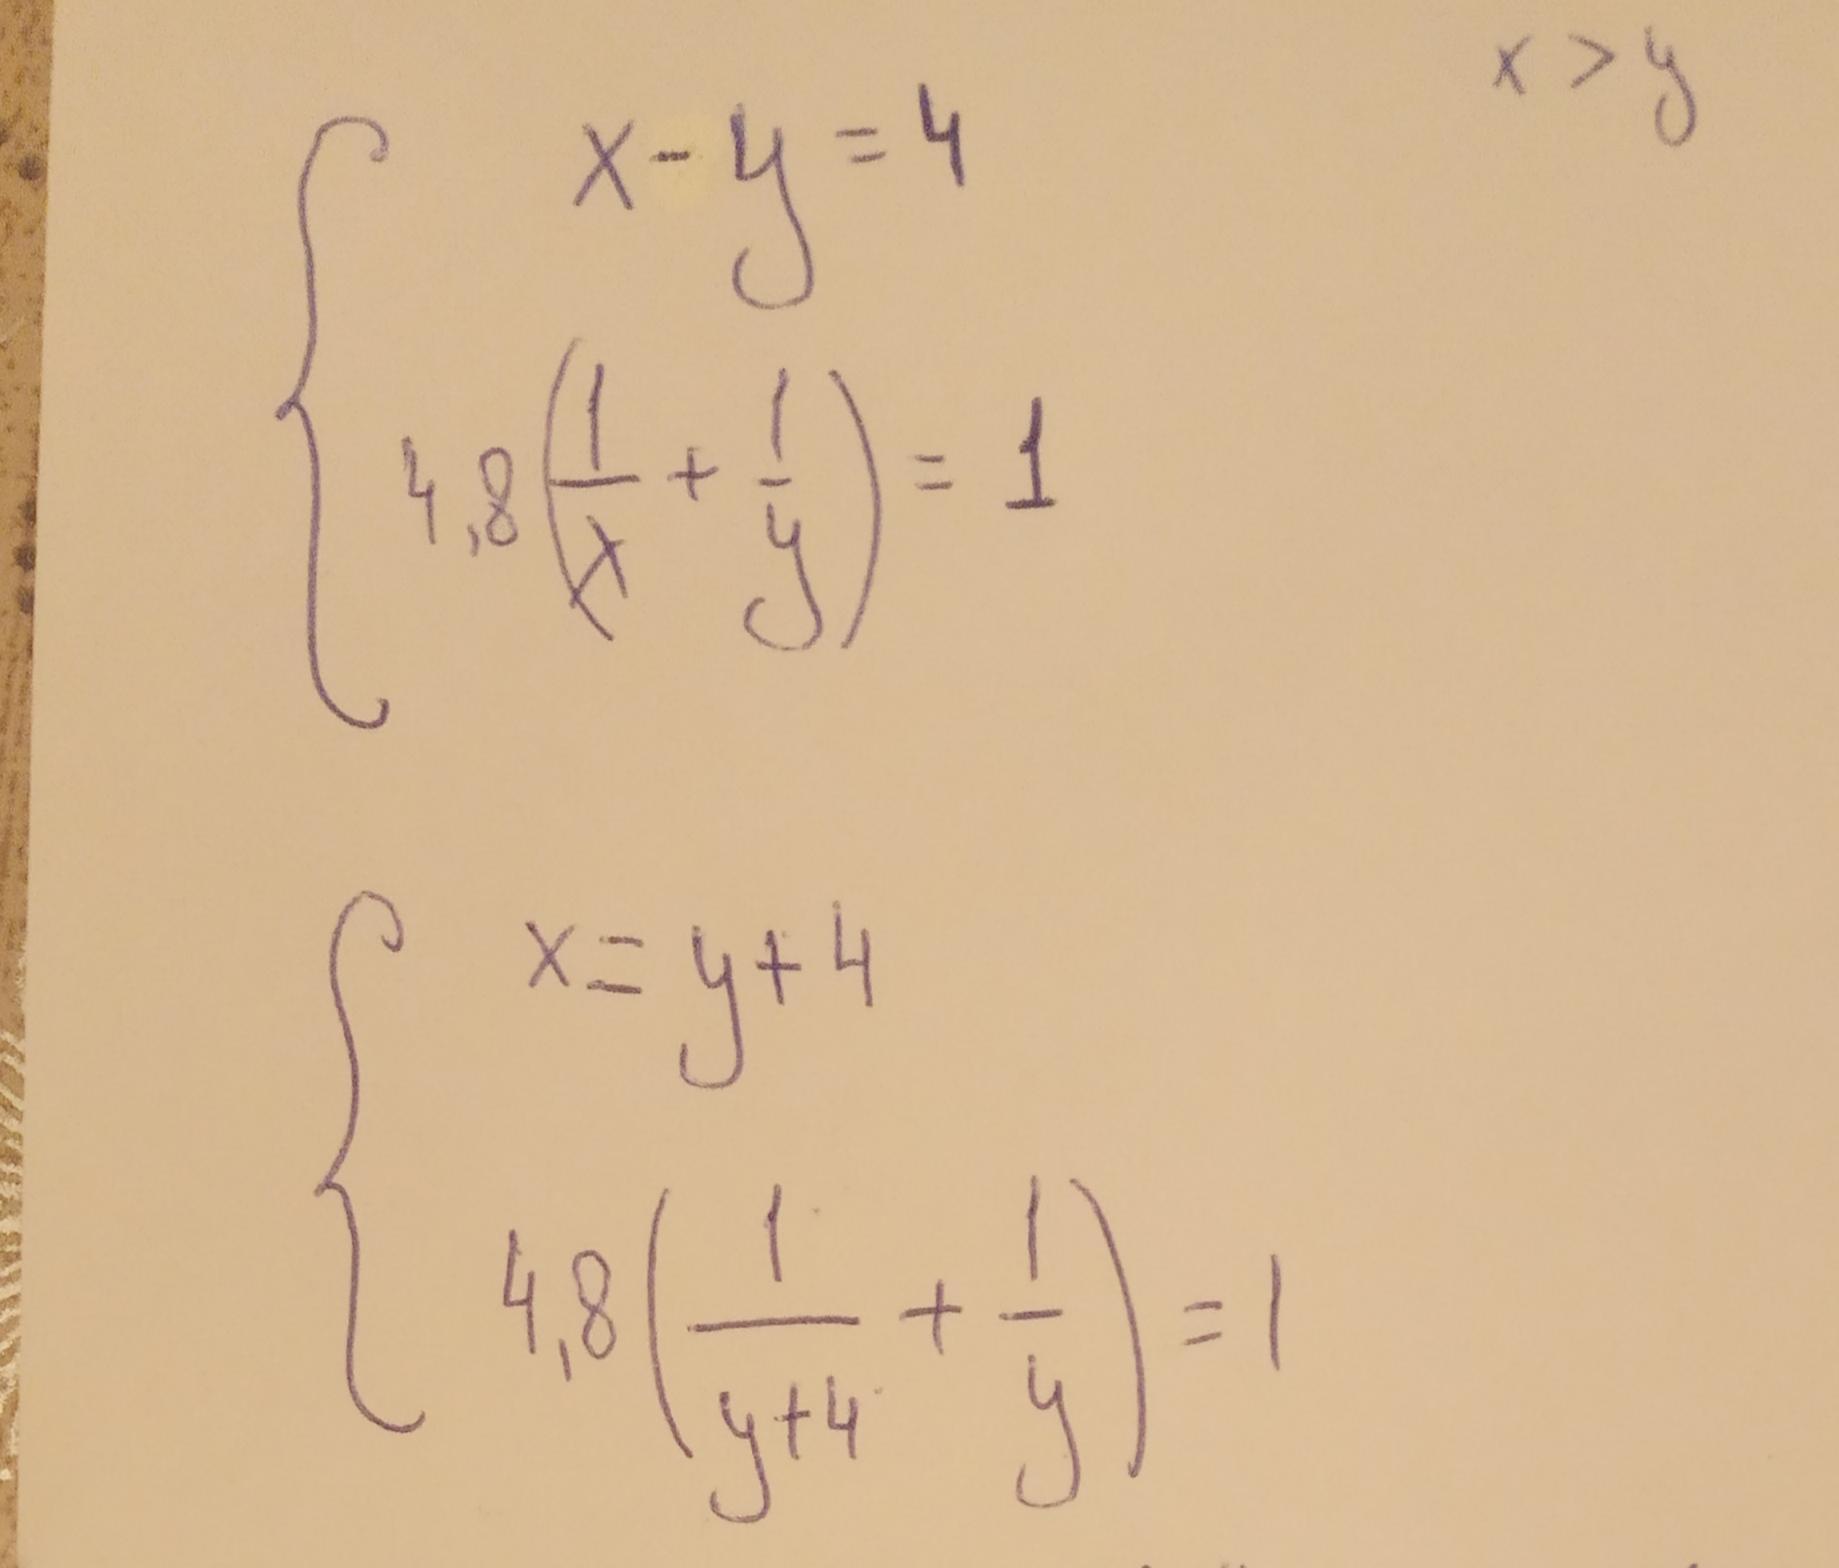 x > y
x - y = 4
4,8(1/x + 1/y) = 1
x = y + 4
4,8(1/(y+4) + 1/y) = 1